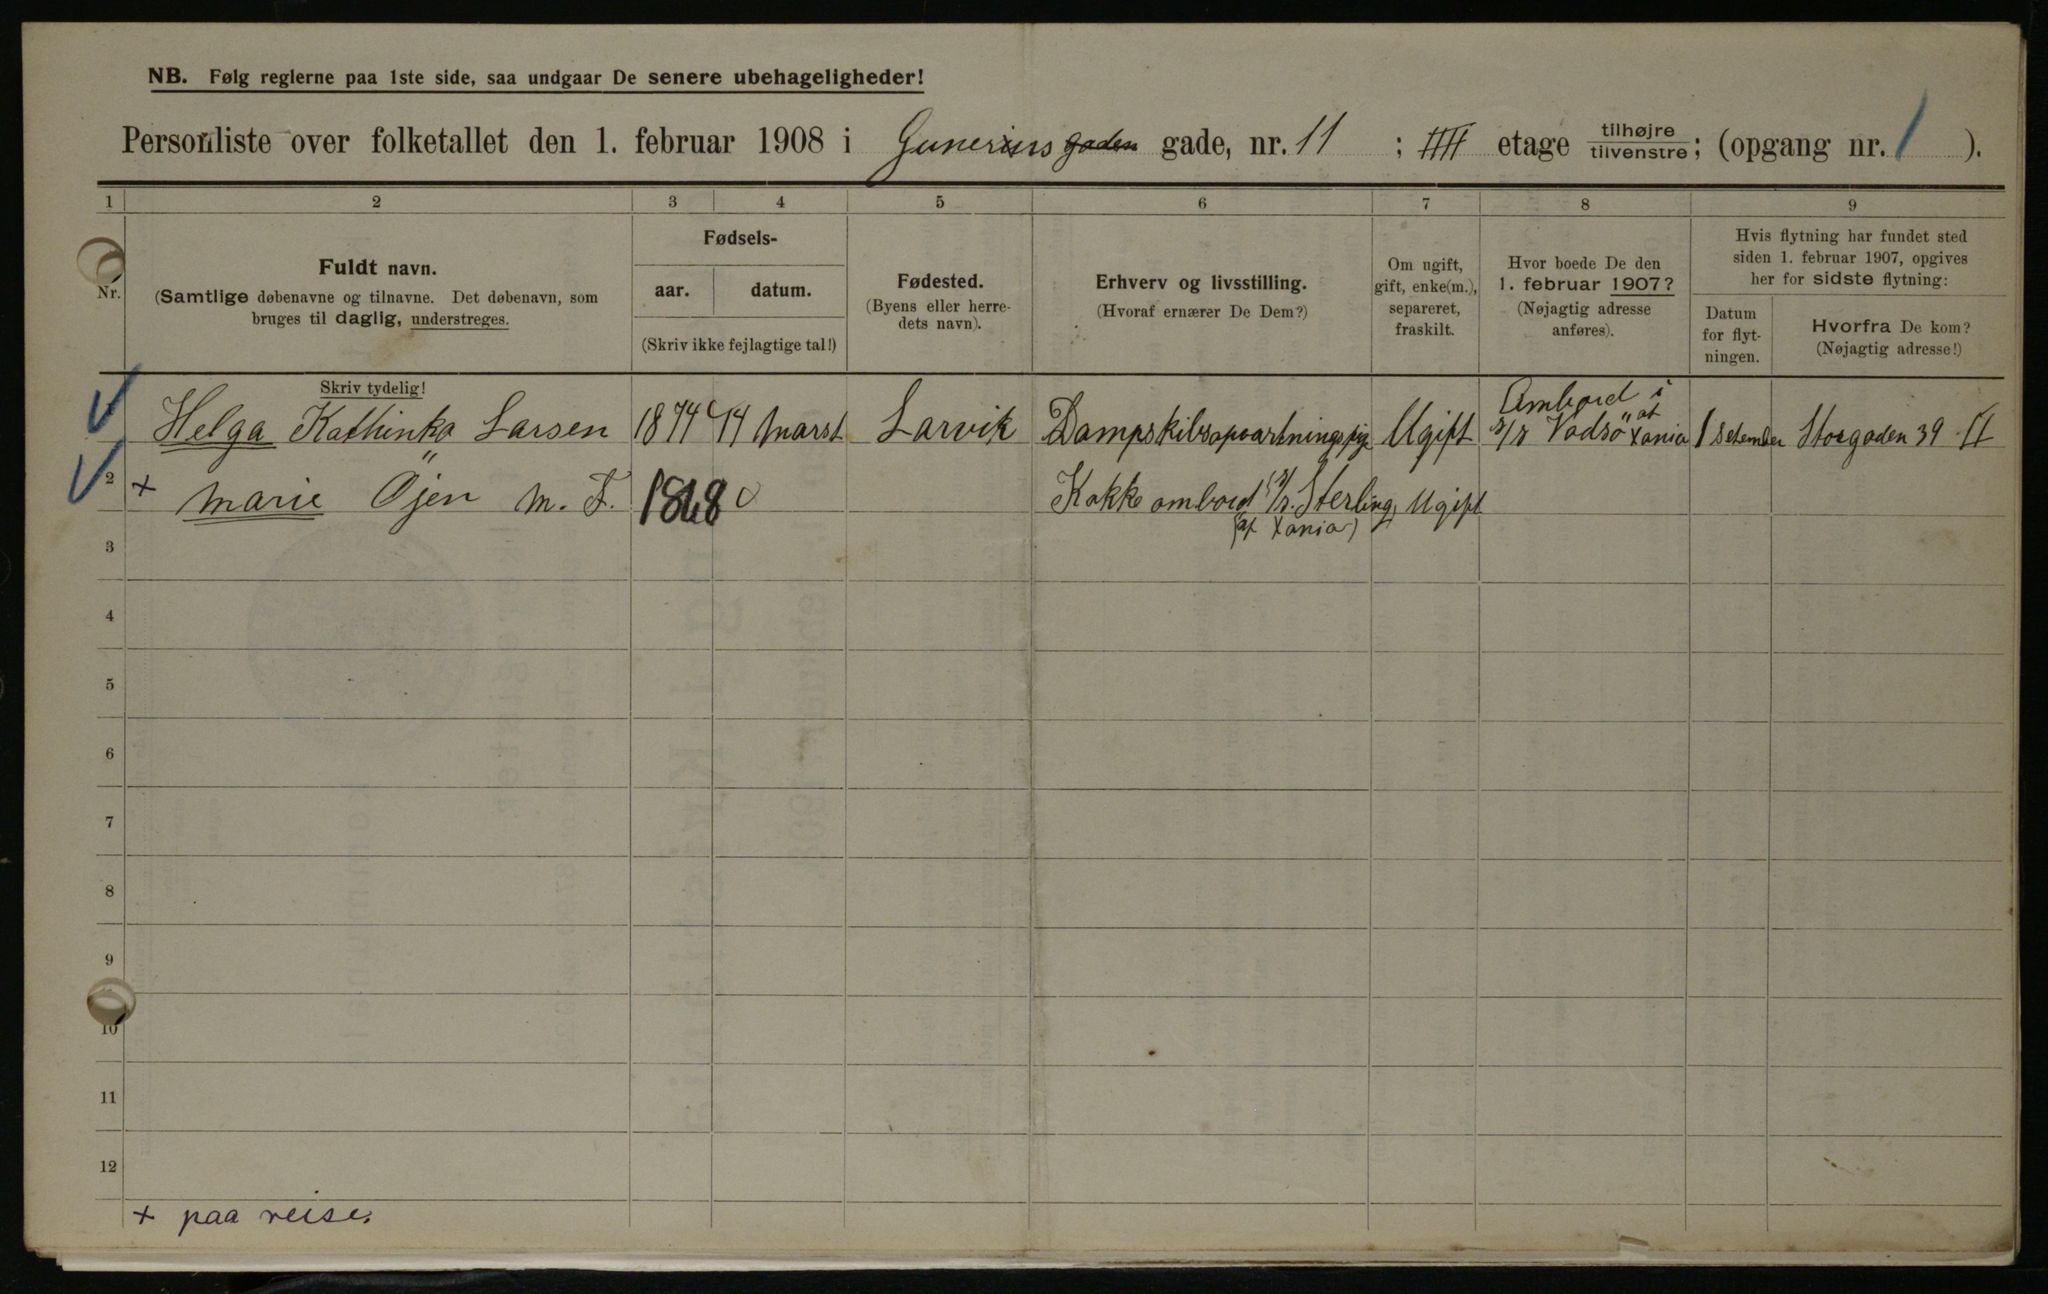 NB. Følg reglerne paa 1ste side, saa undgaar De senere ubehageligheder!
Personliste over folketallet den 1. februar 1908 i Gunerius gaden gade, nr. 11 ; IIII etage tilhøjre/tilvenstre; (opgang nr. 1 ).
1 2 3 4 5 6 7 8 9
Nr.
Fuldt navn.
(Samtlige døbenavne og tilnavne. Det døbenavn, som
bruges til daglig, understreges.
Skriv tydelig!
Fødsels-
aar. datum.
(Skriv ikke fejlagtige tal!)
Fødested.
(Byens eller herre-
dets navn).
Erhverv og livsstilling.
(Hvoraf ernærer De Dem?)
Om ugift,
gift, enke(m.),
separeret,
fraskilt.
Hvor boede De den
1. februar 1907?
(Nøjagtig adresse
anføres).
Hvis flytning har fundet sted
siden 1. februar 1907, opgives
her for sidste flytning:
Datum
for flyt-
ningen.
Hvorfra De kom?
(Nøjagtig adresse!)
Ombord i
Helga Kathinka Larsen 1874 14 Marst Larvik Ugift S/S Vadsö af Xania 1 setember Storgaden 39 II
2 + Marie Öjen M. F. 1848 Kokke ombord S/S. Sterling Ugift
(af Xania)
3
4
5
6
7
8
9
10
11
12
+ paa reise.